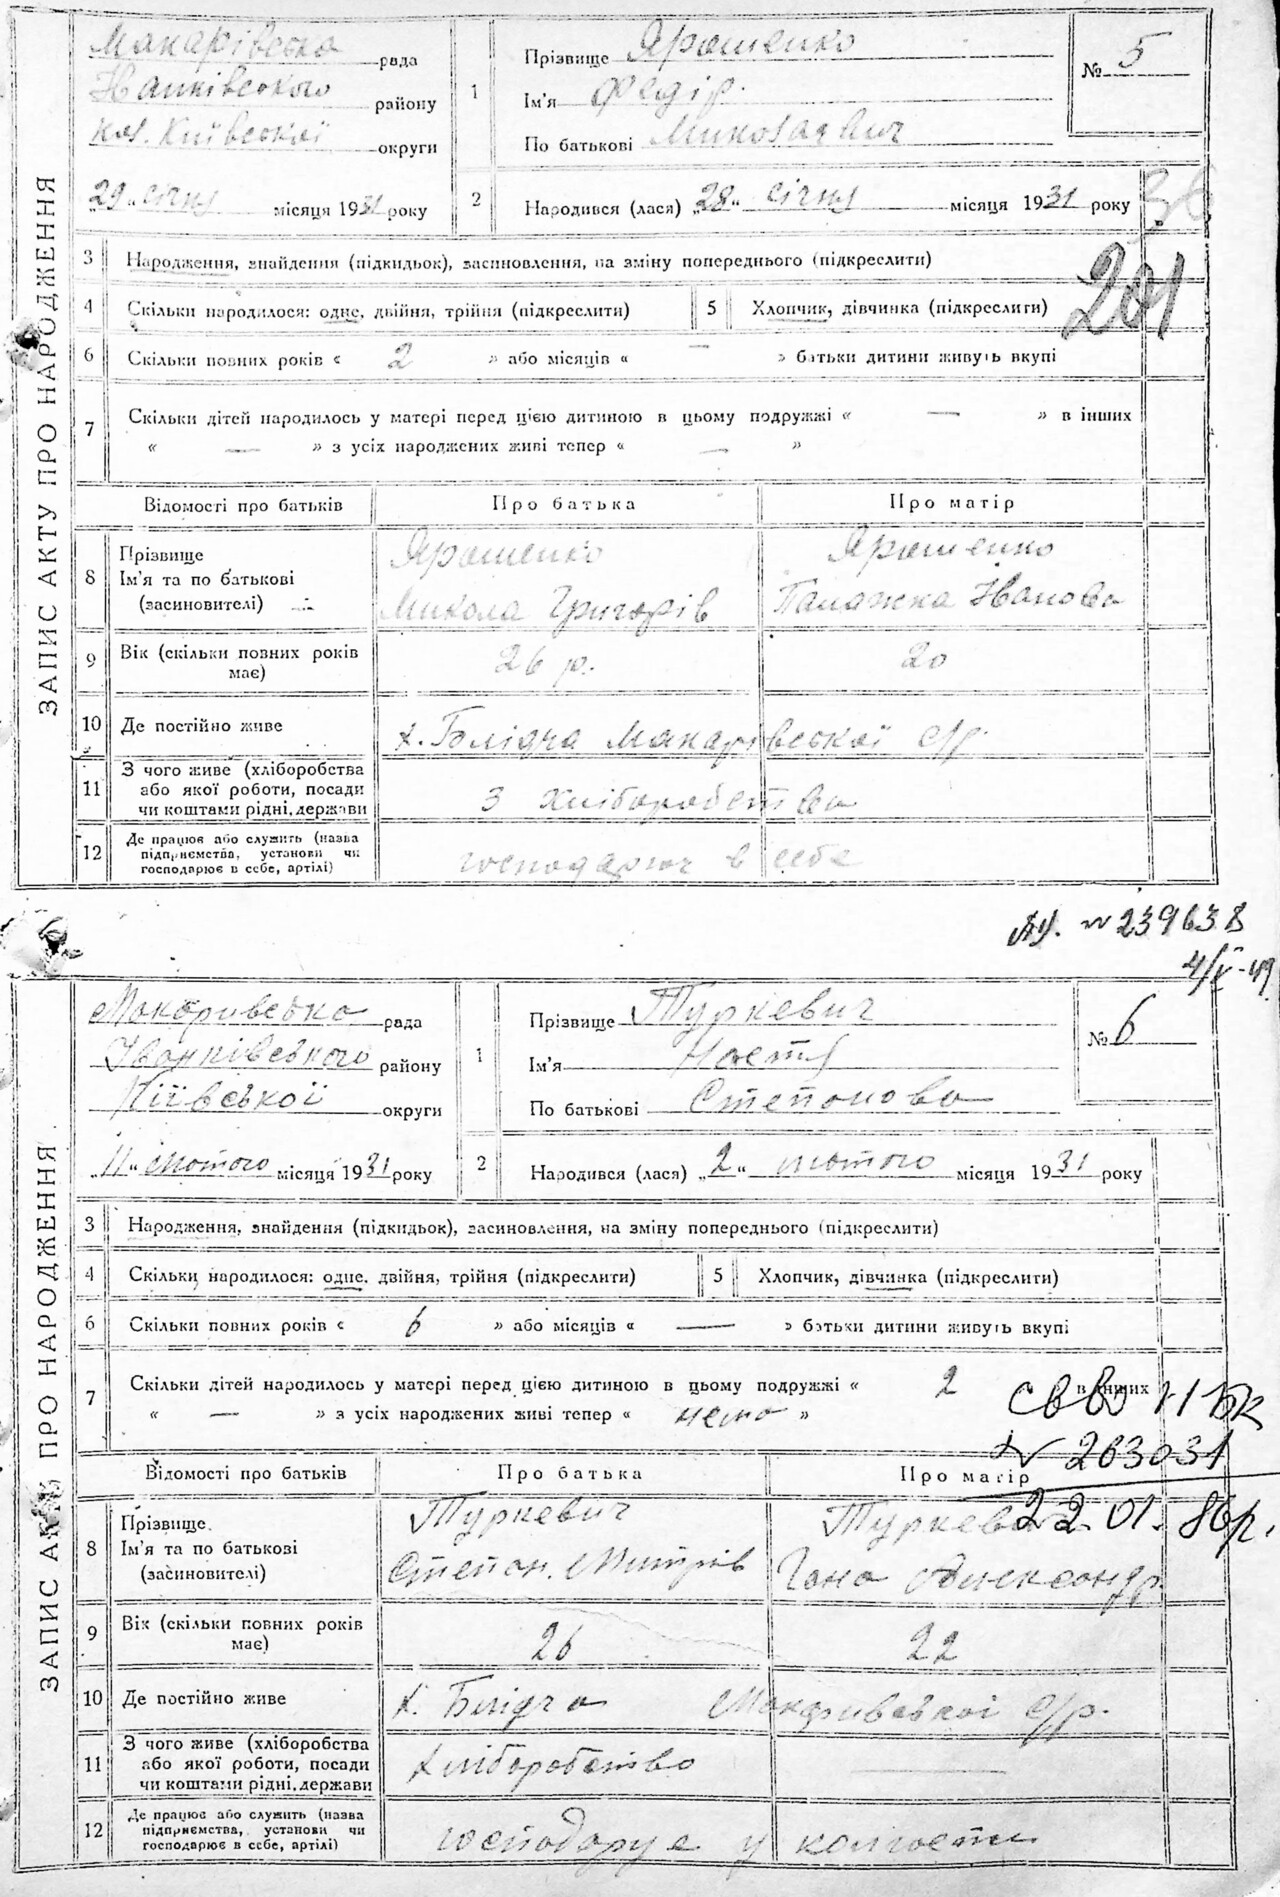 ЗАПИС АКТУ ПРО НАРОДЖЕННЯ
Макарівська рада
Іванківського району
кол. Київської округи
„29" січня місяця 1931 року
1 Прізвище Ярошенко
Ім'я Федір
По батькові Миколаевич
№ 5
2 Народився (лася) „28" січня місяця 1931 року
3 Народження, знайдення (підкидьок), засиновлення, на зміну попереднього (підкреслити)
201
4 Скільки народилося: одне, двійня, трійня (підкреслити) 5 Хлопчик, дівчинка (підкреслити)
6 Скільки повних років « 2 » або місяців « — » батьки дитини живуть вкупі
7 Скільки дітей народилось у матері перед цією дитиною в цьому подружжі « — » в інших
« — » з усіх народжених живі тепер « — »
Відомості про батьків Про батька Про матір
8 Прізвище Ім'я та по батькові (засиновителі)
Ярошенко Микола Григорів
Ярошенко Палажка Іванова
9 Вік (скільки повних років має) 26 р. 20
10 Де постійно живе х. Блідча Макарівської с/р.
11 З чого живе (хліборобства або якої роботи, посади чи коштами рідні, держави З хліборобства
12 Де працює або служить (назва підприємства, установи чи господарює в себе, артілі) господарюють в себе
№ 239638
4/V-49
ЗАПИС АКТУ ПРО НАРОДЖЕННЯ
Макаривська рада
Іванківського району
Київської округи
„11" лютого місяця 1931 року
1 Прізвище Туркевич
Ім'я Настя
По батькові Степанова
№ 6
2 Народився (лася) „2" лютого місяця 1931 року
3 Народження, знайдення (підкидьок), засиновлення, на зміну попереднього (підкреслити)
4 Скільки народилося: одне, двійня, трійня (підкреслити) 5 Хлопчик, дівчинка (підкреслити)
6 Скільки повних років « 6 » або місяців « — » батьки дитини живуть вкупі
7 Скільки дітей народилось у матері перед цією дитиною в цьому подружжі « 2 в інших
« — » з усіх народжених живі тепер « нема »
№ 263031
22.01.86р.
Відомості про батьків Про батька Про матір
8 Прізвище Ім'я та по батькові (засиновителі)
Туркевич Степан Митрів
Туркевич Гана Александр.
9 Вік (скільки повних років має) 26 22
10 Де постійно живе х. Блідча Макаривської с/р.
11 З чого живе (хліборобства або якої роботи, посади чи коштами рідні, держави хліборобство —
12 Де працює або служить (назва підприємства, установи чи господарює в себе, артілі) господарує у